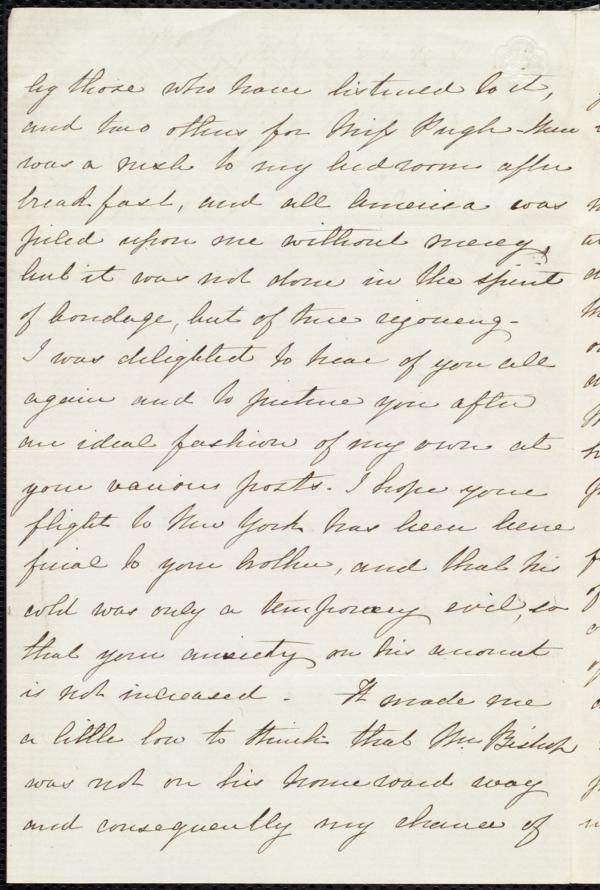 by those who have listened to it,
and two others for Miss Pugh - There
was a rush to my bedroom after
breakfast, and all America was
piled upon me without mercy,
but it was not done in the spirit
of bondage, but of true rejoicing -
I was delighted to hear of you all
again and to picture you after
an ideal fashion of my own at
your various posts. I hope your
flight to New York has been bene
ficial to your brother, and that his
cold was only a temporary evil, so
that your anxiety on his account
is not increased - It made me
a little low to think that Mr. Bishop
was not on his homeward way
and consequently my chance of